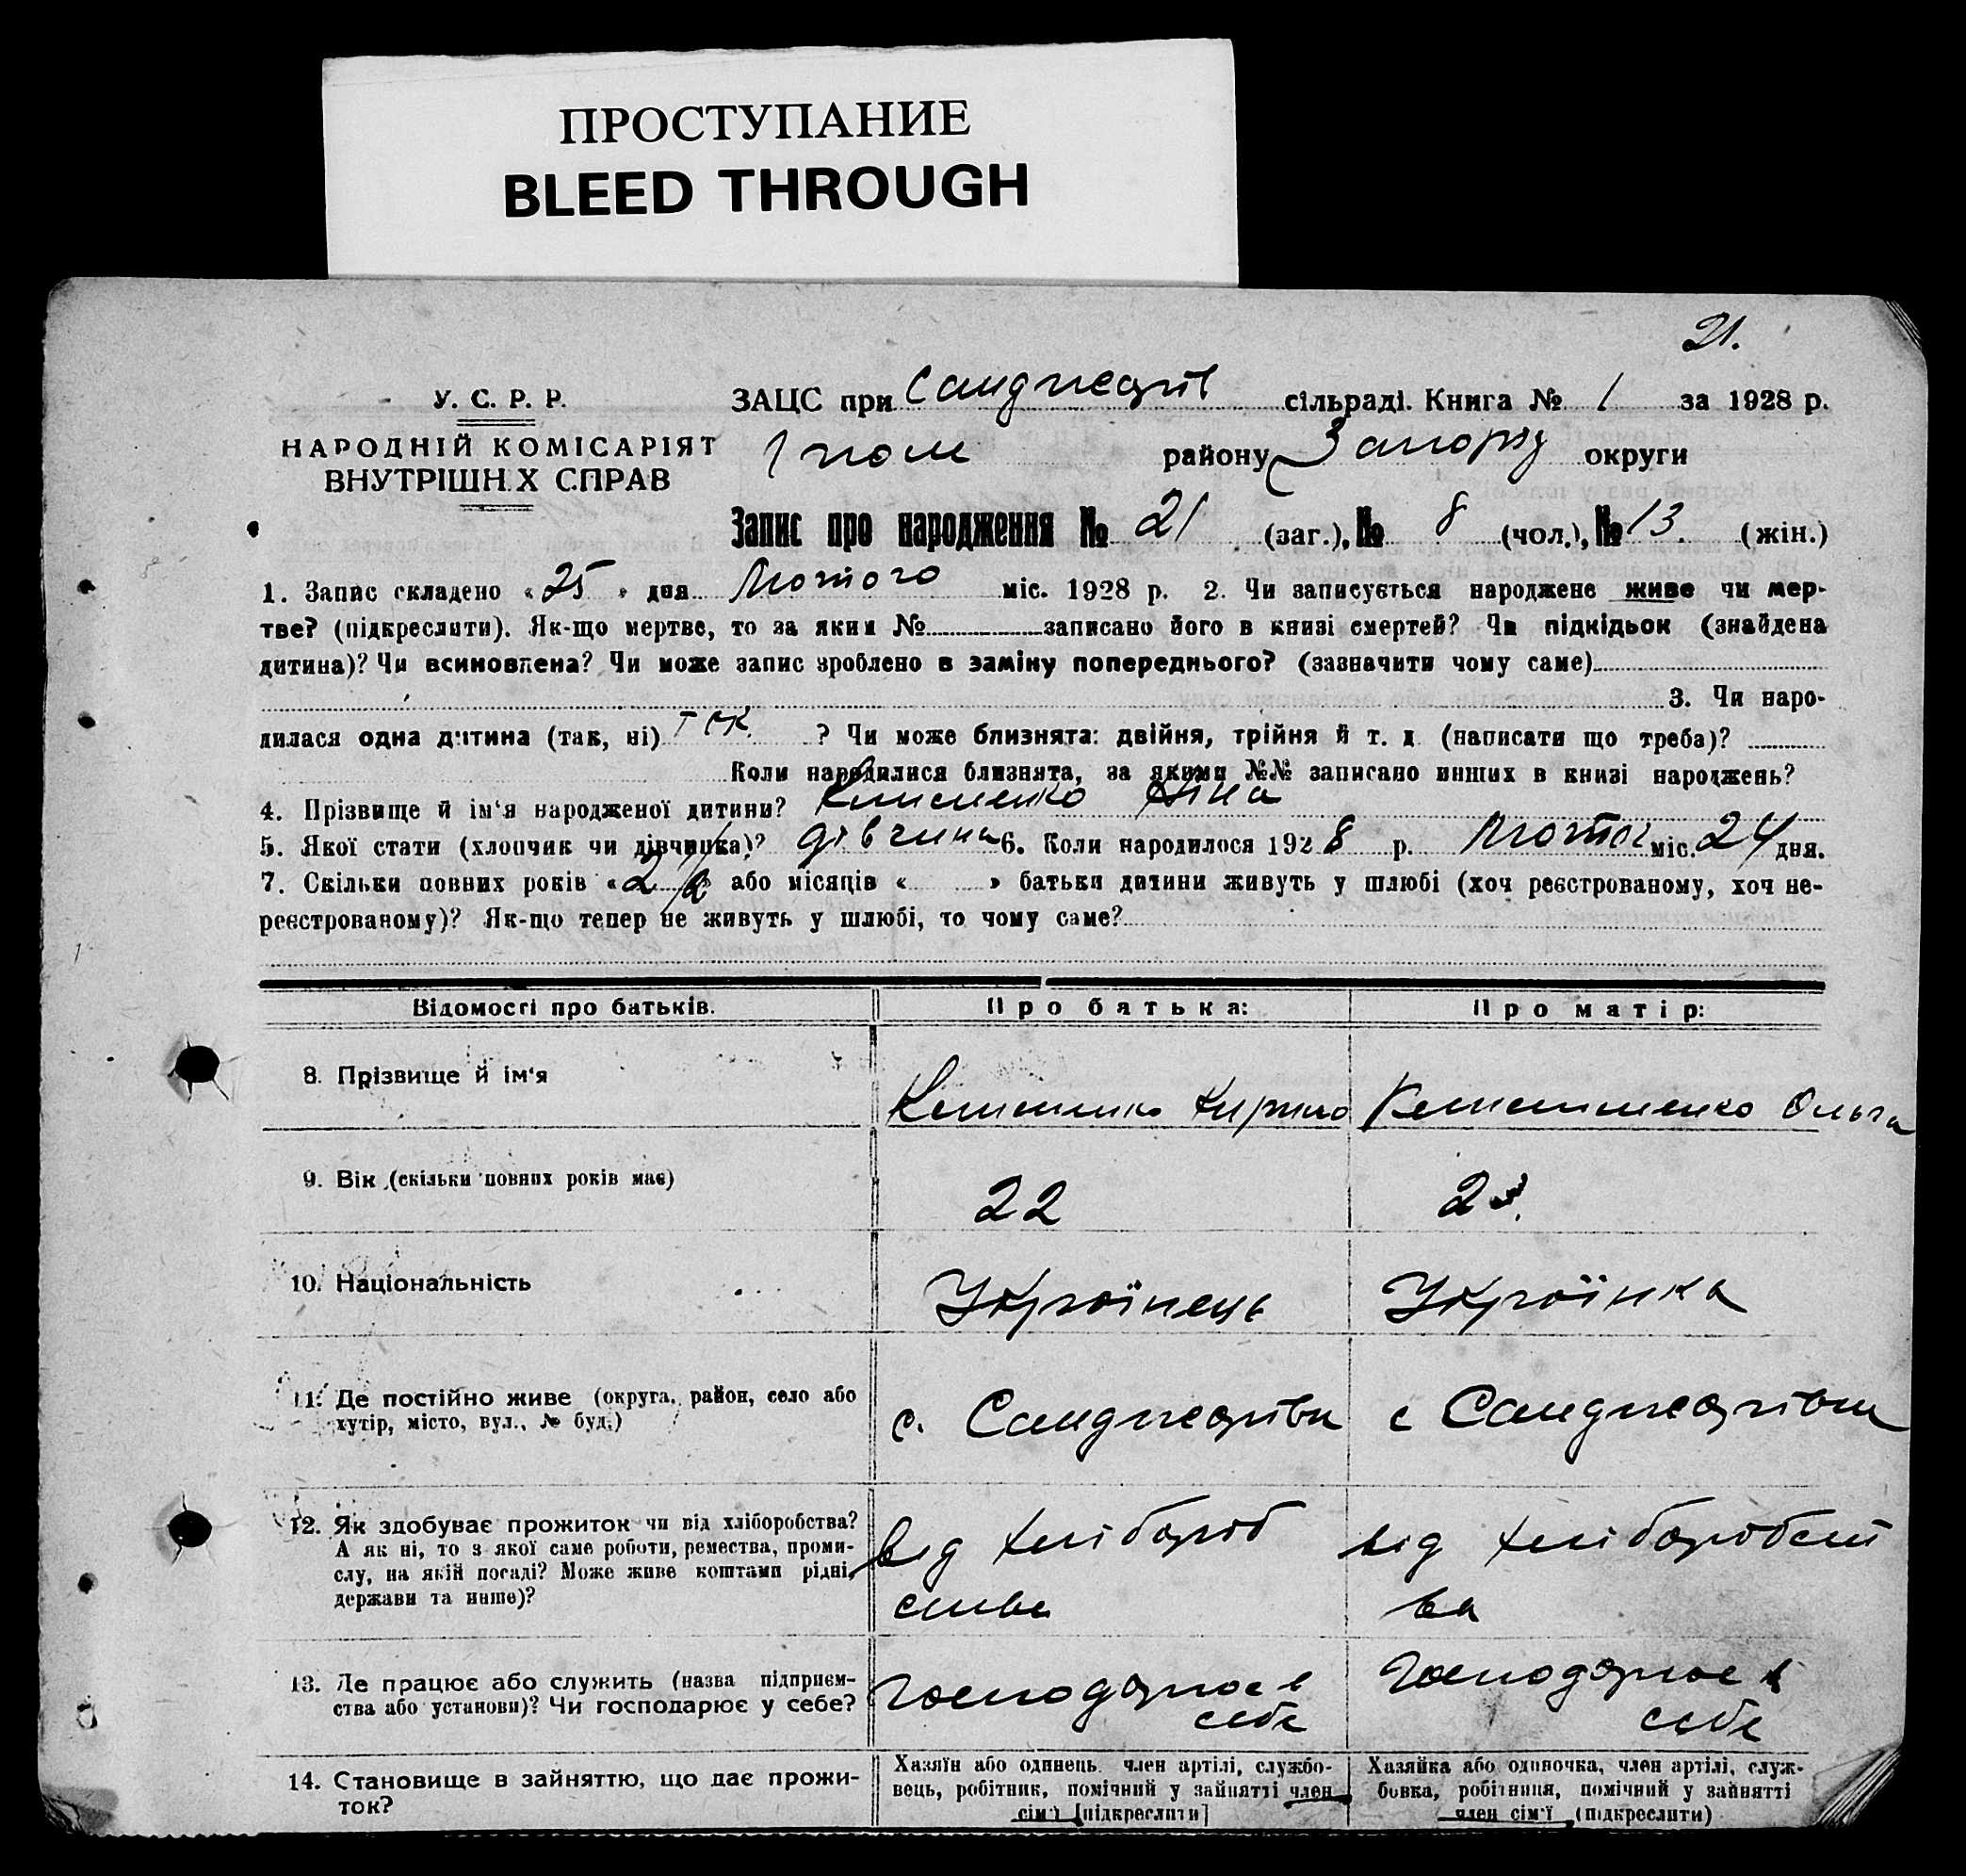 ПРОСТУПАНИЕ
BLEED THROUGH
21.
У. С. Р. Р.
НАРОДНІЙ КОМІСАРІЯТ
ВНУТРІШН.Х СПРАВ
ЗАЦС при сільраді. Книга № 1 за 1928 р.
району Запоріз округи
Запис про народження № 21 (заг.), № 8 (чол.), № 13. (жін.)
1. Запис складено «25» дня Лютого міс. 1928 р. 2. Чи записується народжене живе чи мер-
тве? (підкреслити). Як-що мертве, то за яким № записано його в книзі смертей? Чи підкідьок (знайдена
дитина)? Чи всиновлена? Чи може запис зроблено в заміну попереднього? (зазначити чому саме)
3. Чи наро-
дилася одна дитина (так, ні) так ? Чи може близнята: двійня, трійня й т. д (написати що треба)?
Коли народилися близнята, за якими №№ записано инших в книзі народжень?
4. Прізвище й ім'я народженої дитини? Клименко Ніна
5. Якої стати (хлопчик чи дівчинка)? дівчина 6. Коли народилося 1928 р. Лютог міс. 24 дня.
7. Скільки повних років «2» або місяців « » батьки дитини живуть у шлюбі (хоч реєстрованому, хоч не-
реєстрованому)? Як-що тепер не живуть у шлюбі, то чому саме?
Відомості про батьків.
Про батька:
Про матір:
8. Прізвище й ім'я
Клименко Кирило
Ольга
9. Вік (скільки повних років має)
22
10. Національність
Українець
Українка
11. Де постійно живе (округа, район, село або
хутір, місто, вул., № буд.)
с.
с
12. Як здобуває прожиток чи від хліборобства?
А як ні, то з якої саме роботи, ремества, проми-
слу, на якій посаді? Може живе коштами рідні,
держави та инше)?
від хлібороб
ства
від хліборобст
ва
13. Де працює або служить (назва підприєм-
ства або установи)? Чи господарює у себе?
господарює в
себе
господарює в
себе
14. Становище в зайняттю, що дає прожи-
ток?
Хазяїн або одинець. член артілі, службо-
вець, робітник, помічний у зайнятті член
сім'ї [підкреслити]
Хазяйка або одиночка, член артілі, служ-
бовка, робітниця, помічний у зайнятті
член сім'ї (підкреслити)